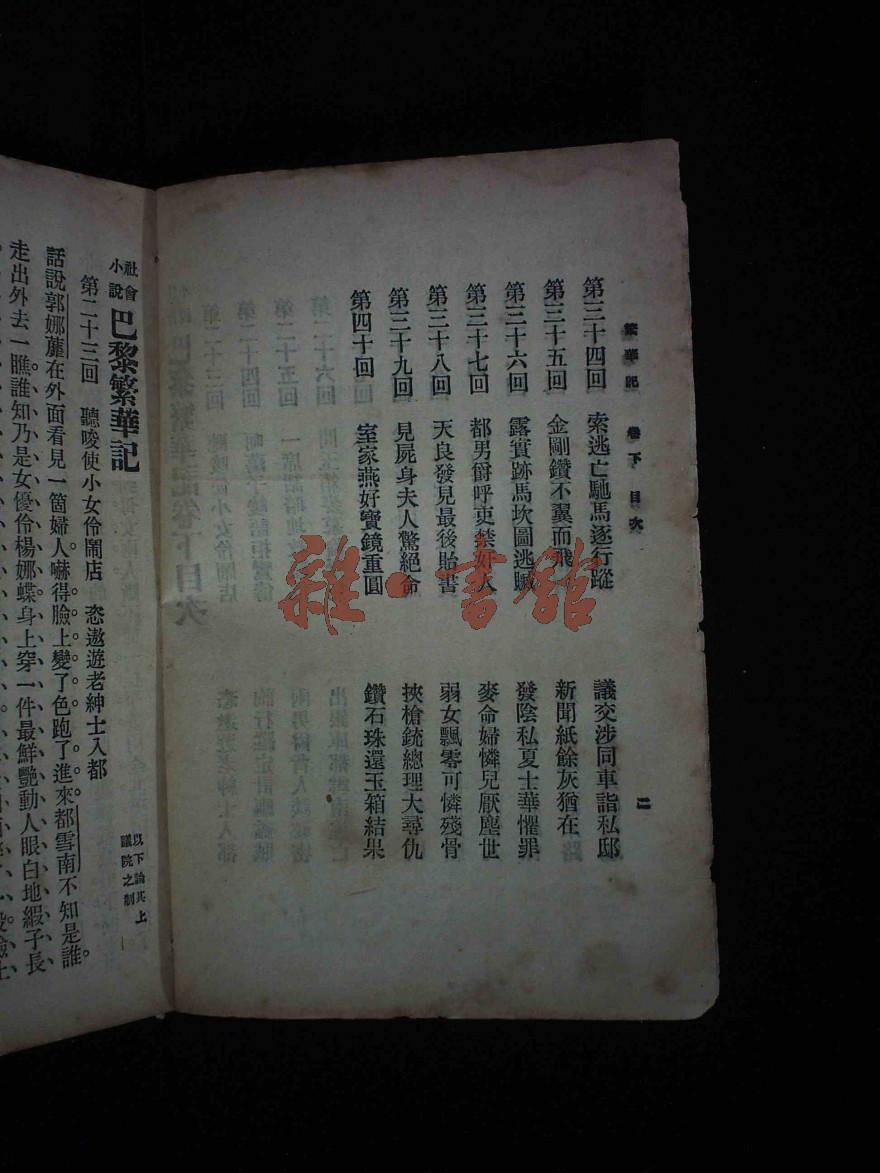 繁華記 卷下 目次 二
第三十四回 索逃亡馳馬逐行蹤 議交涉同車詣私邸
第三十五回 金剛鑽不翼而飛 新聞紙餘灰猶在
第三十六回 露實跡馬坎圖逃 發陰私夏士華懼罪
第三十七回 都男爵呼吏禁奸人 麥命婦憐兒厭塵世
第三十八回 天良發見最後貽書 弱女飄零可憐殘骨
第三十九回 見屍身夫人驚絕命 挾槍銃總理大尋仇
第四十回 室家燕好寶鏡重圓 鑽石珠還玉箱結果
雜·書館
社會小說 巴黎繁華記
第二十三回 聽唆使小女伶鬧店 恣遨遊老紳士入都
以下論其上議院之制
話說郭娜蘼在外面看見一箇婦人嚇得臉上變了色跑了進來都雪南不知是誰。
走出外去一瞧誰知乃是女優伶楊娜蝶身上穿一件最鮮艷動人眼白地緞子長